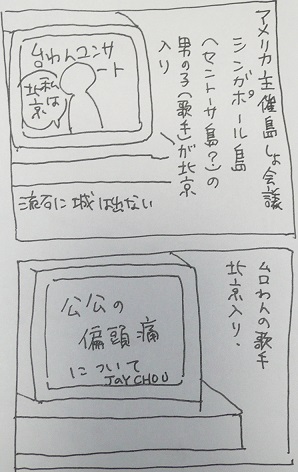 アメリカ主催島しょ会議
シンガポール島
(セントーサ島?)の
男の子(歌手)が北京
入り
台わんコンサ
ート
私は
北京
流石に城は出ない
台わんの歌手
北京入り.
公公の
偏頭痛
について
JAY CHOU